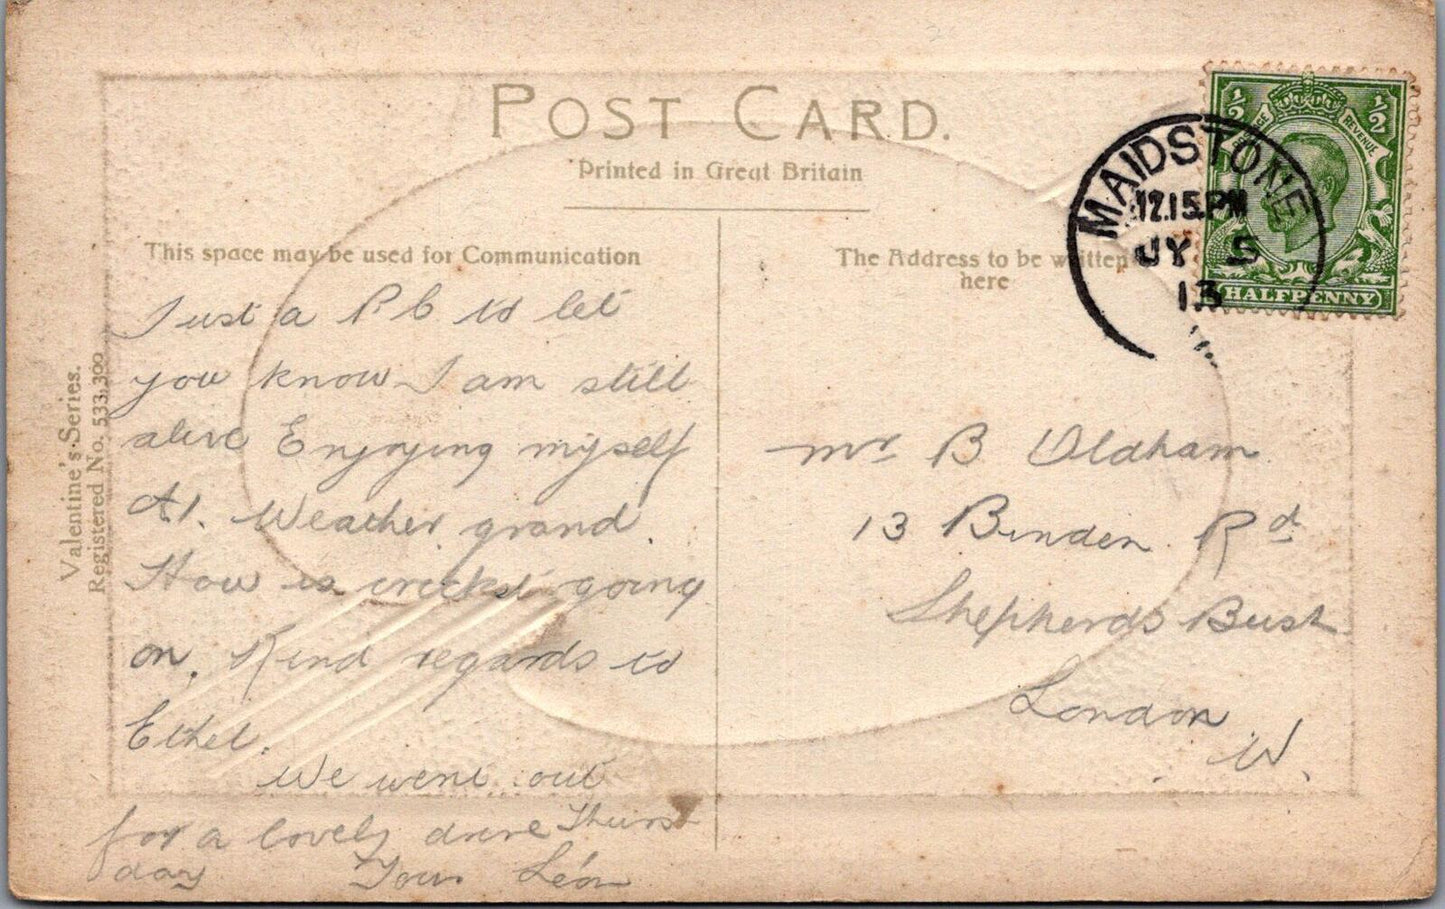 POST CARD.
Printed in Great Britain
This space may be used for Communication
The Address to be written
here
Valentine's Series.
Registered No. 533,300
MAIDSTONE
12.15.PM
JY 5
13
1/2
1/2
REVENUE
HALFPENNY
Just a P C to let
you know I am still
alive Enjoying myself
A1. Weather grand.
How is cricket going
on. Kind regards to
Ethel.
We went out
for a lovely drive Thurs
day Your Léon
Mr B Oldham
13 Binden Rd
Shepherds Bush
London
W.